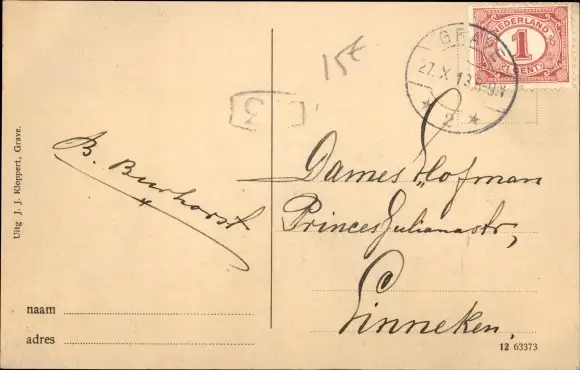 NEDERLAND
1
CENT
GRAVE
27.X.13
2
15€
Uitg J. J. Kloppert, Grave.
B. Burhorst
Dames Hofman
Princes Julianastr,
Ginneken,
naam
adres
12 63373